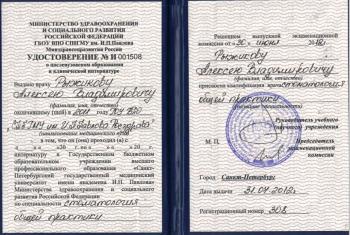 МИНИСТЕРСТВО ЗДРАВООХРАНЕНИЯ
И СОЦИАЛЬНОГО РАЗВИТИЯ
РОССИЙСКОЙ ФЕДЕРАЦИИ
ГБОУ ВПО СПбГМУ им. И.П.Павлова
Минздравсоцразвития России
УДОСТОВЕРЕНИЕ № И 001508
о послевузовском образовании
в клинической интернатуре
Выдано врачу Рыжикову
Алексею Владимировичу
(фамилия, имя, отчество)
окончившему (шей) в 2011 году
(наименование медицинского вуза)
в том, что он (она) проходил (а) с
интернатуру в Государственном бюджетном
образовательном учреждении высшего
профессионального образования «Санкт-
Петербургский государственный медицинский
университет имени академика И.П. Павлова»
Министерства здравоохранения и социального
развития Российской Федерации
по специальности стоматология
общей практики
Решением выпускной экзаменационной
комиссии от «30» июня
Рыжикову
Алексею Владимировичу
(фамилия, имя, отчество)
присвоена квалификация врача стоматолога
общей практики
Руководитель учебного
учреждения
М. П.
Председатель
экзаменационной
комиссии
Город Санкт-Петербург
Дата выдачи 31.07.2012г.
Регистрационный номер 308